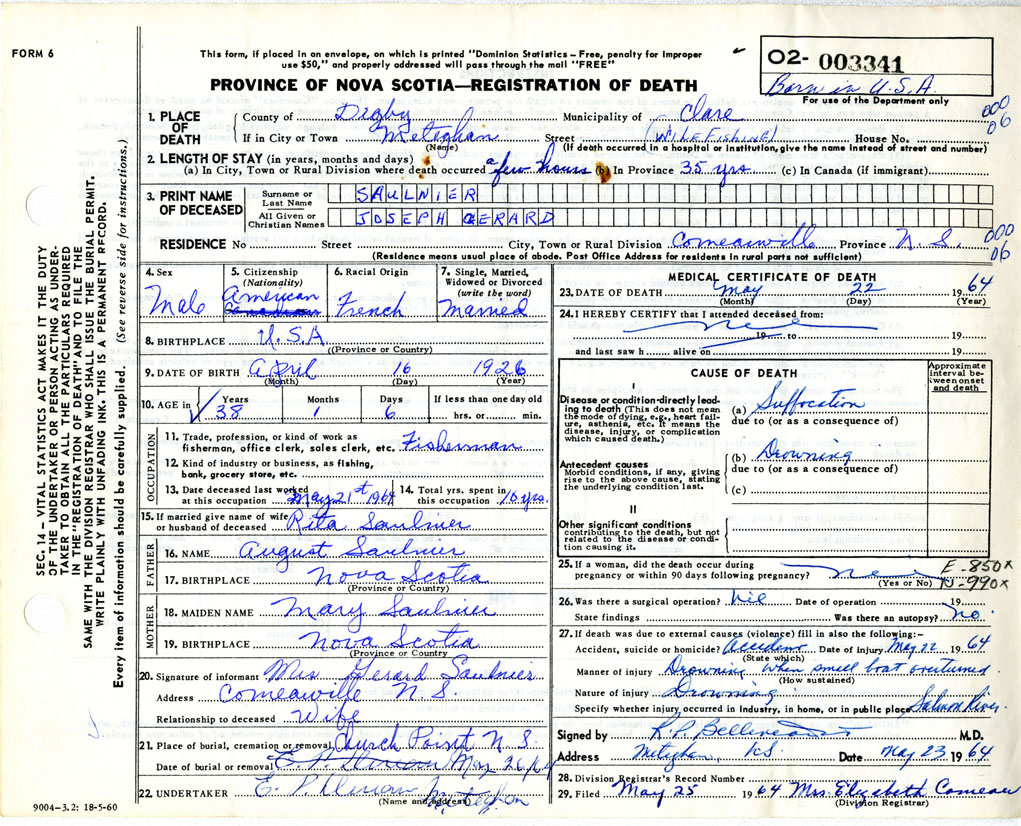 FORM 6
This form, if placed in an envelope, on which is printed "Dominion Statistics – Free, penalty for improper
use $50," and properly addressed will pass through the mail "FREE"
02- 003341
Born in U.S.A.
For use of the Department only
PROVINCE OF NOVA SCOTIA—REGISTRATION OF DEATH
000
06
1. PLACE OF DEATH
County of Digby Municipality of Clare
If in City or Town Meteghan Street (While Fishing) House No.
(Name) (If death occurred in a hospital or institution, give the name instead of street and number)
2. LENGTH OF STAY (in years, months and days)
(a) In City, Town or Rural Division where death occurred a few hours (b) In Province 35 yrs (c) In Canada (if immigrant)
3. PRINT NAME OF DECEASED
Surname or Last Name SAULNIER
All Given or Christian Names JOSEPH GERARD
RESIDENCE No Street City, Town or Rural Division Comeauville Province N.S.
000
06
(Residence means usual place of abode. Post Office Address for residents in rural parts not sufficient)
4. Sex
Male
5. Citizenship
(Nationality)
American
Canadian
6. Racial Origin
French
7. Single, Married,
Widowed or Divorced
(write the word)
Married
8. BIRTHPLACE U.S.A
(Province or Country)
9. DATE OF BIRTH April 16 1926
(Month) (Day) (Year)
10. AGE in Years Months Days If less than one day
38 1 6 hrs. or min.
OCCUPATION
11. Trade, profession, or kind of work as
fisherman, office clerk, sales clerk, etc. Fisherman
12. Kind of industry or business, as fishing,
bank, grocery store, etc.
13. Date deceased last worked
at this occupation May 21st 1964
14. Total yrs. spent in
this occupation 10 yrs.
15. If married give name of wife
or husband of deceased Rita Saulnier
FATHER
16. NAME August Saulnier
17. BIRTHPLACE Nova Scotia
(Province or Country)
MOTHER
18. MAIDEN NAME Mary Saulnier
19. BIRTHPLACE Nova Scotia
(Province or Country
20. Signature of informant Mrs Gerard Saulnier
Address Comeauville N.S.
Relationship to deceased Wife
21. Place of burial, cremation or removal Church Point N.S.
Date of burial or removal May 26/64
22. UNDERTAKER E. P. Meteghan
(Name and address)
9004–3.2: 18-5-60
MEDICAL CERTIFICATE OF DEATH
23. DATE OF DEATH May 22 1964
(Month) (Day) (Year)
24. I HEREBY CERTIFY that I attended deceased from:
19 to 19
and last saw h alive on 19
CAUSE OF DEATH
Approximate
interval be-
tween onset
and death
I
Disease or condition directly lead-
ing to death (This does not mean
the mode of dying, e.g., heart fail-
ure, asthenia, etc. It means the
disease, injury, or complication
which caused death.)
(a) Suffocation
due to (or as a consequence of)
Antecedent causes
Morbid conditions, if any, giving
rise to the above cause, stating
the underlying condition last.
(b) Drowning
due to (or as a consequence of)
(c)
II
Other significant conditions
contributing to the death, but not
related to the disease or condi-
tion causing it.
25. If a woman, did the death occur during
pregnancy or within 90 days following pregnancy?
(Yes or No)
E-850X
N-990X
26. Was there a surgical operation? Nil Date of operation 19
State findings Was there an autopsy? no
27. If death was due to external causes (violence) fill in also the following:–
Accident, suicide or homicide? Accident Date of injury May 22 1964
(State which)
Manner of injury Drowning when small boat overturned
(How sustained)
Nature of injury Drowning
Specify whether injury occurred in industry, in home, or in public place Salmon River
Signed by M.D.
Address Meteghan, N.S Date May 23 1964
28. Division Registrar's Record Number
29. Filed May 25 1964 Mrs. Elizabeth Comeau
(Division Registrar)
SEC. 14 – VITAL STATISTICS ACT MAKES IT THE DUTY
OF THE UNDERTAKER OR PERSON ACTING AS UNDER-
TAKER TO OBTAIN ALL THE PARTICULARS REQUIRED
IN THE "REGISTRATION OF DEATH" AND TO FILE THE
SAME WITH THE DIVISION REGISTRAR WHO SHALL ISSUE THE BURIAL PERMIT.
WRITE PLAINLY WITH UNFADING INK. THIS IS A PERMANENT RECORD.
Every item of information should be carefully supplied. (See reverse side for instructions.)